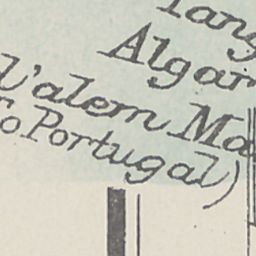 Algar
d'alem Ma
To Portugal)